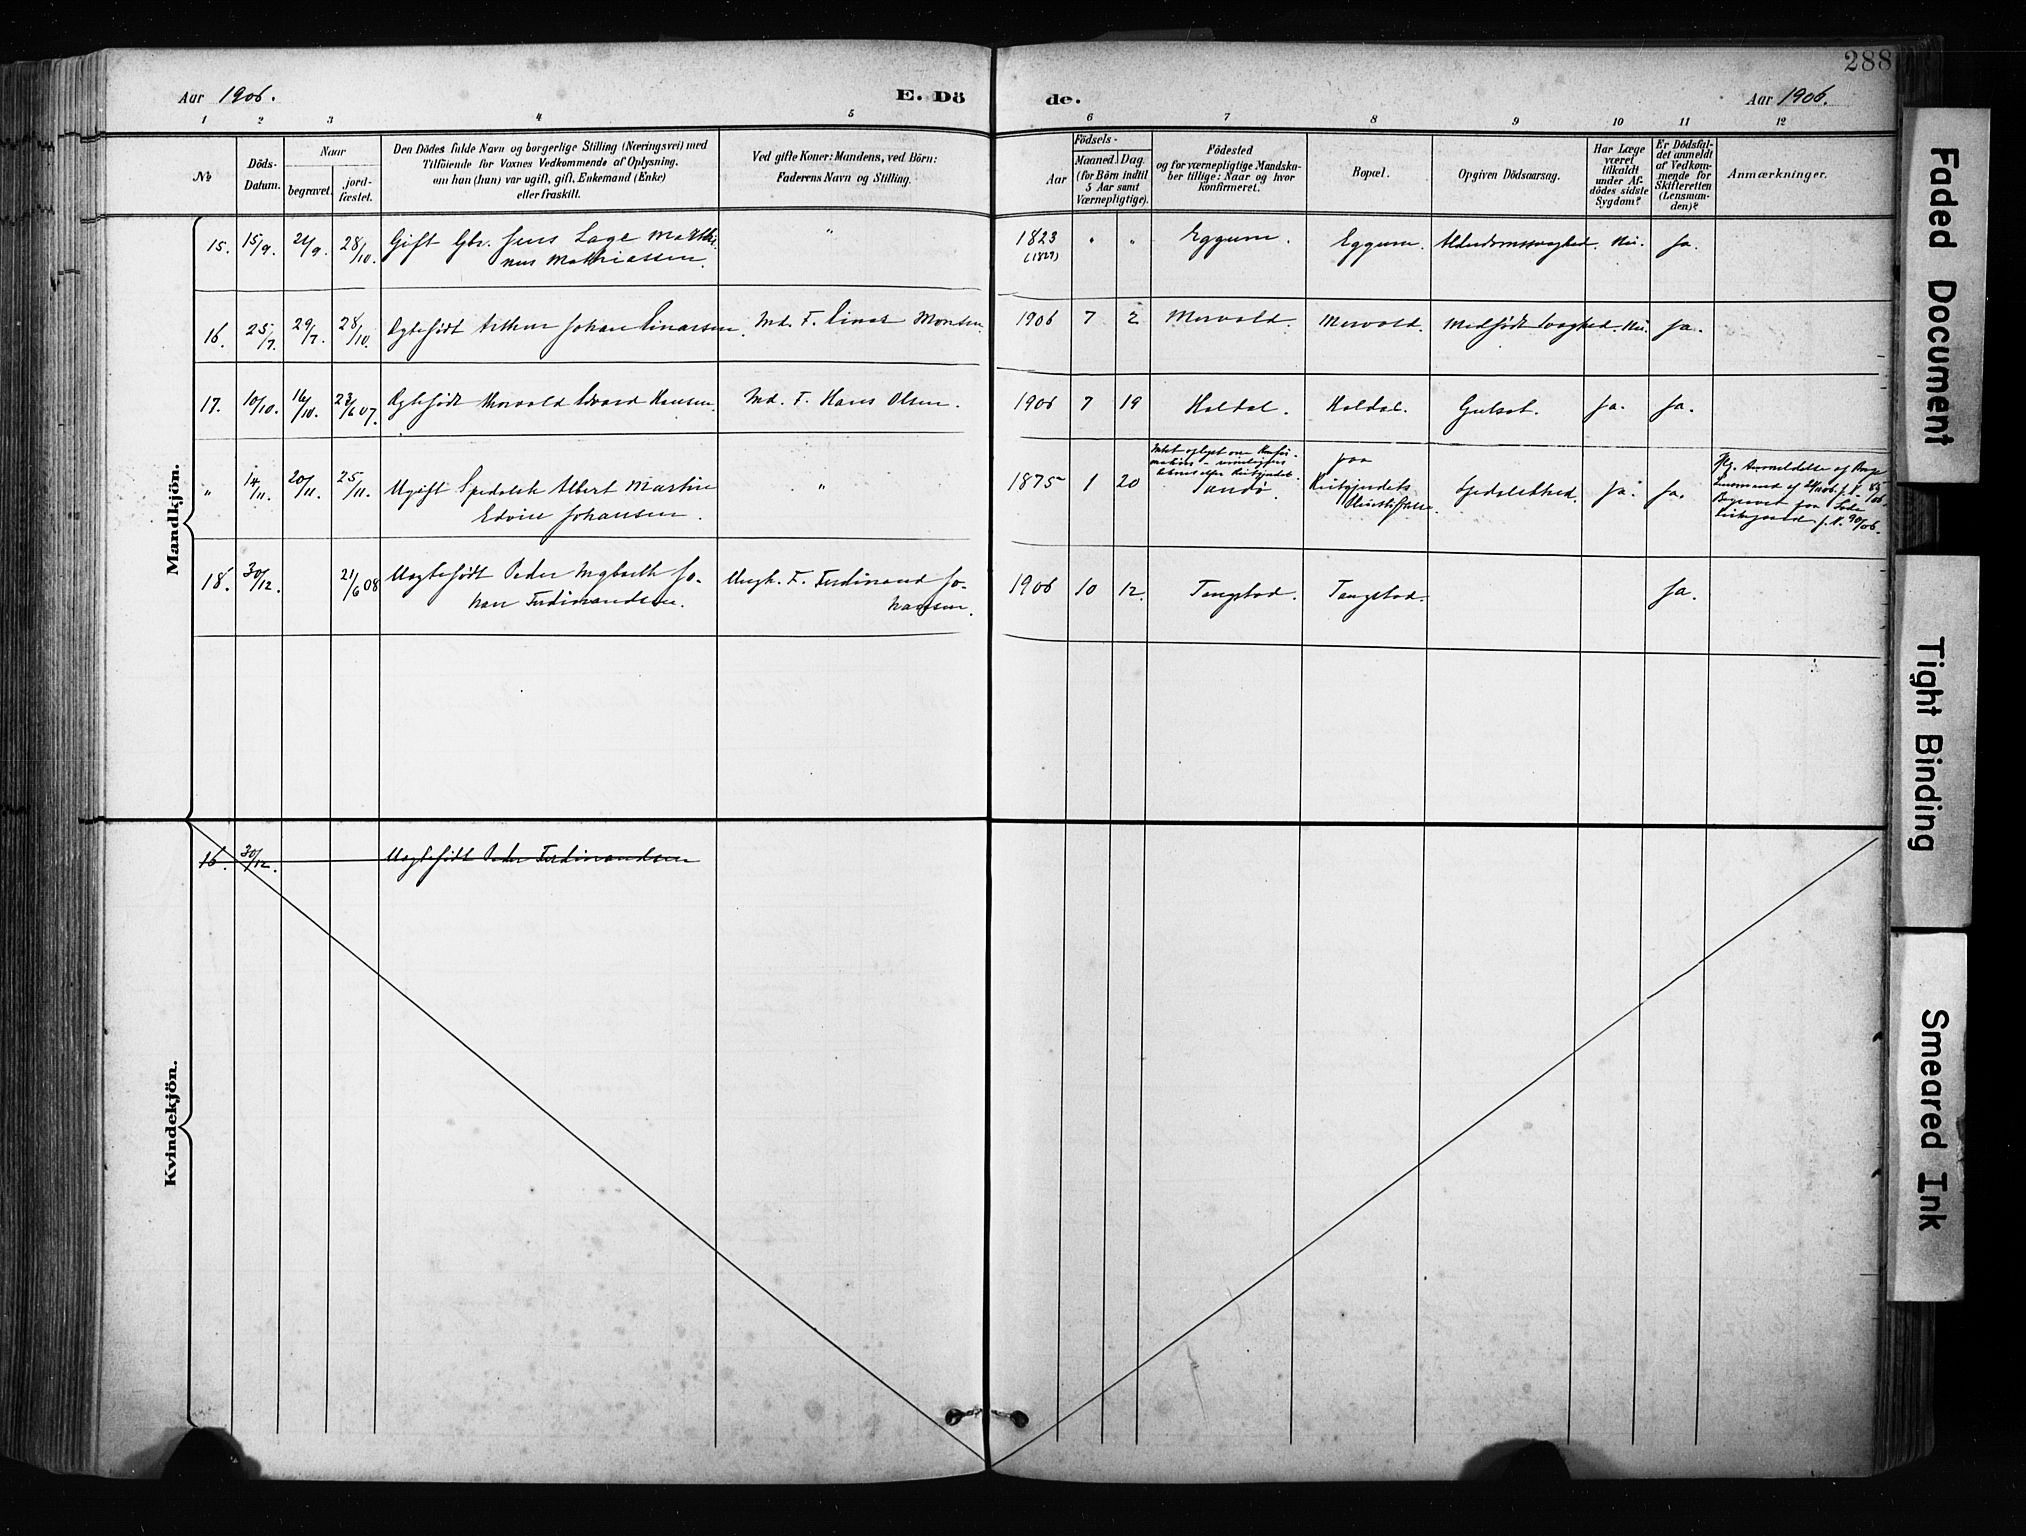 288
Aar 1906.
E. Dö
de.
Aar 1906.
1 2 3 4 5 6 7 8 9 10 11 12
No
Döds-Datum.
Naar
begravet.
jord-fæstet.
Den Dödes fulde Navn og borgerlige Stilling (Næringsvei) med
Tilföiende for Voxnes Vedkommende af Oplysning,
om han (hun) var ugift, gift, Enkemand (Enke)
eller fraskilt.
Ved gifte Koner: Mandens, ved Börn:
Faderens Navn og Stilling.
Födsels-
Aar
Maaned. Dag.
(for Börn indtil
5 Aar samt
Værnepligtige).
Födested
og for værnepligtige Mandska-
ber tillige: Naar og hvor
konfirmeret.
Bopæl.
Opgiven Dödsaarsag.
Har Læge
været
tilkaldt
under Af-
dödes sidste
Sygdom?
Er Dödsfal-
det anmeldt
af Vedkom-
mende for
Skifteretten
(Lensman-
den)?
Anmærkninger.
Mandkjön.
15. 15/9. 21/9. 28/10. Gift Gbr. Jens Lage Mathi-
nus Mathiassen.
" 1823 " " Eggum. Eggum. Alderdomssvaghed. Nei. Ja.
(1829)
16. 25/7. 29/7. 28/10. Egtefödt Arthur Johan Einarsen. Md. F. Einar Monsen. 1906 7 2 Mervold. Mervold. Medfödt Svaghed. Nei. Ja.
17. 10/10. 16/10. 23/6 07. Egtefödt Thorvald Edvard Hansen. Md. F. Hans Olsen. 1906 7 19 Holdal. Holdal. Gulsot. Ja. Ja.
" 14/11. 20/11. 25/11. Ugift Spedalsk Albert Martin
Edvin Johansen.
" 1875 1 20 Sandö. paa
Reitgjerdets
Pleiestiftelse.
Spedalskhed. Ja. Ja.
18. 30/12. 21/6 08 Uegtefödt Peder Ingbreth Jo-
han Ferdinandsen.
Ungk. F. Ferdinand Jo-
hansen.
1906 10 12. Tangstad. Tangstad. Ja.
Kvindekjön.
16. 30/12. Uegtefödt Peder Ferdinandsen
Faded Document
Tight Binding
Smeared Ink